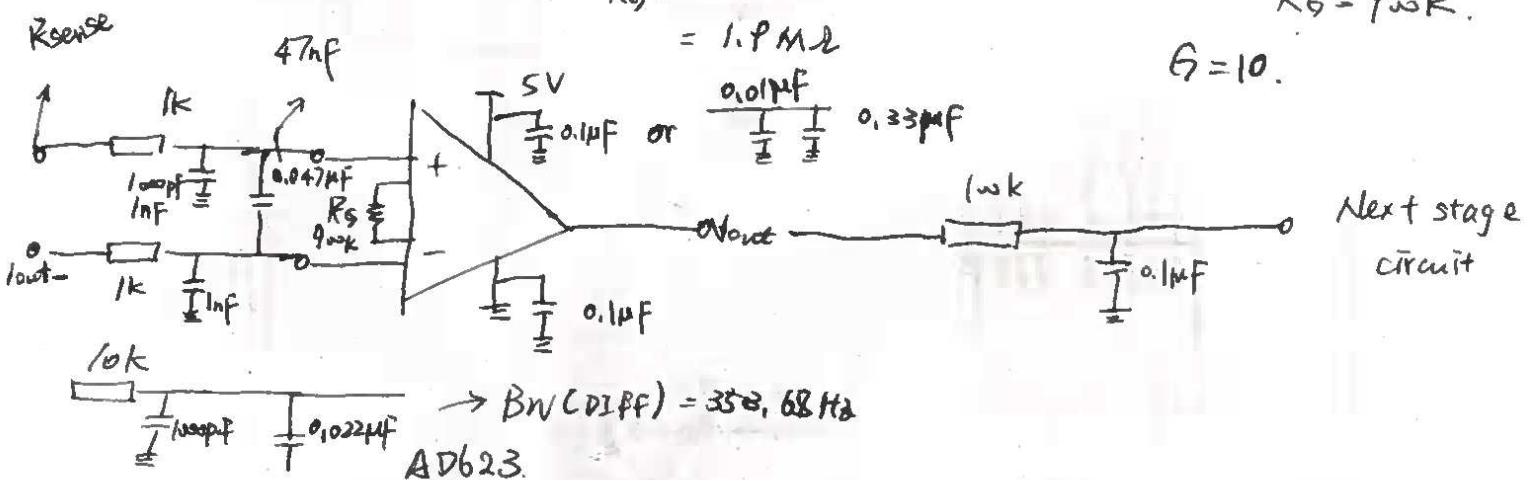 Rsense
47nF
= 1.9 MΩ
G = 10.
1k
5V
0.1µF or
0.01µF
0.33µF
1000pF
1nF
0.047µF
+
RG
900k
-
Vout
100k
Next stage
circuit
0.1µF
Iout-
1k
1nF
0.1µF
10k
1000pF
0.022µF
→ BW (DIFF) = 353.68 Hz
AD623.